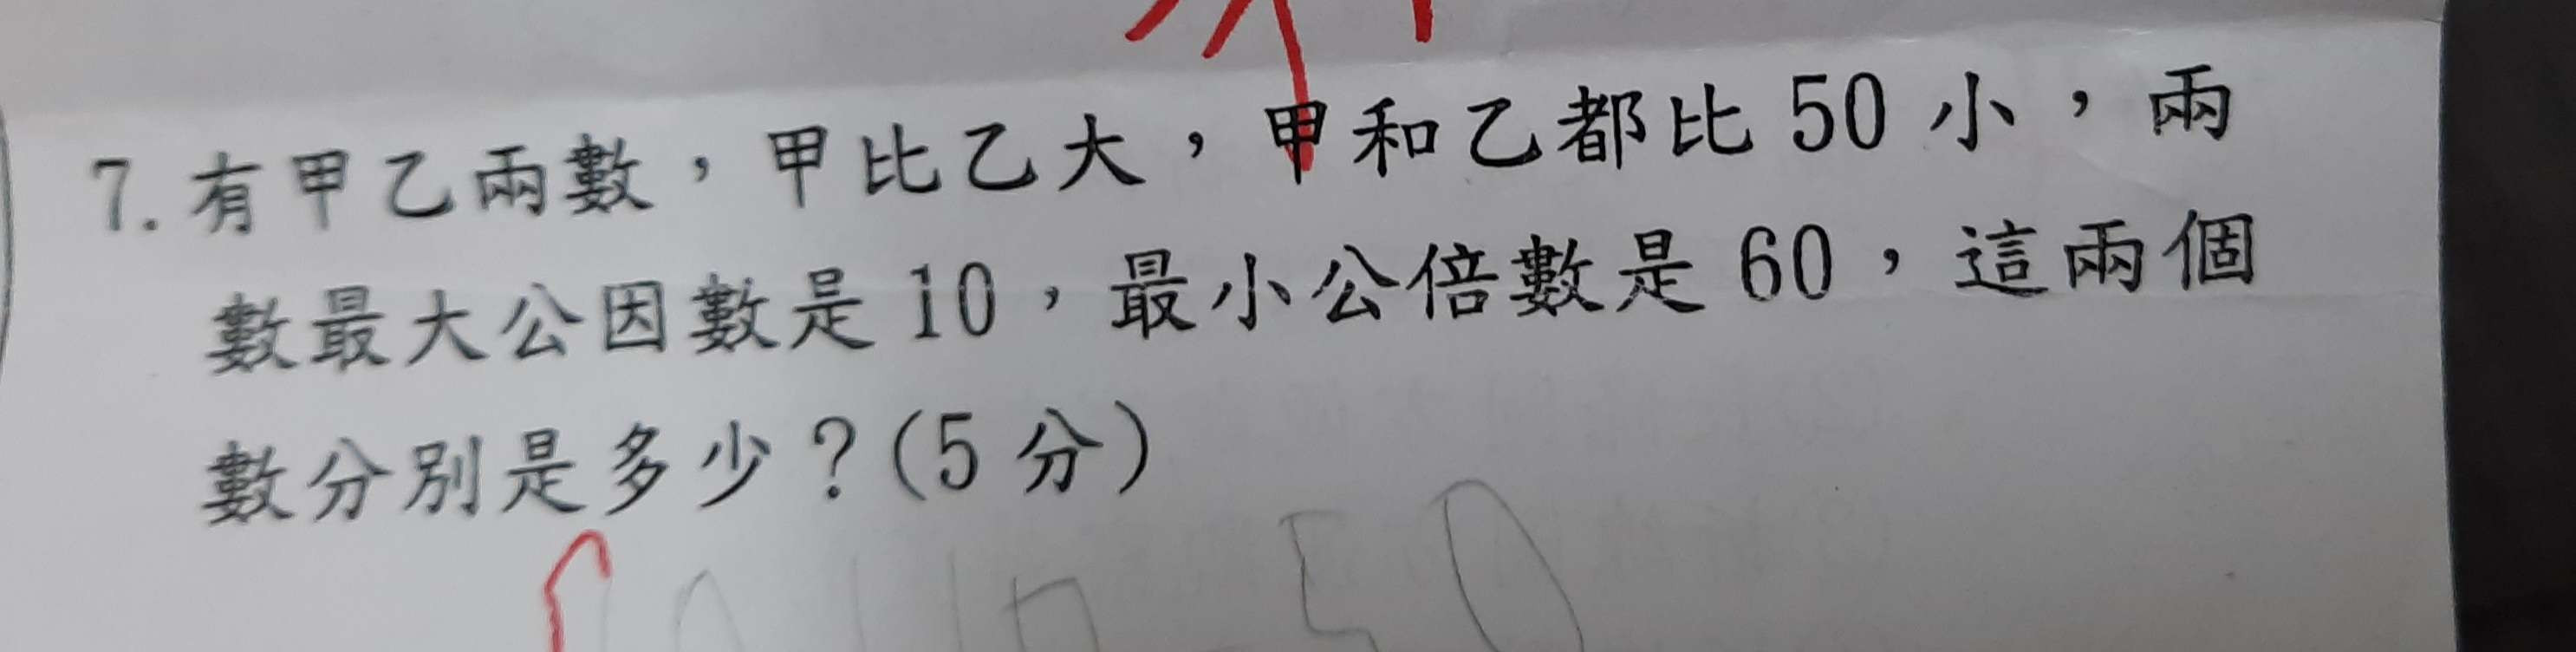 7. 有甲乙兩數，甲比乙大，甲和乙都比 50 小，兩
數最大公因數是 10，最小公倍數是 60，這兩個
數分別是多少？(5 分)